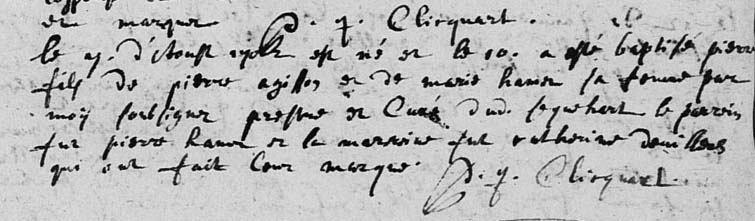 et marque D. q. Clicquart.
le 9. d'Aoust est né et le 10. a esté baptisé pierre
fils de pierre agisson et de marie hanon sa femme par
moy soubsigner prestre et Curé dud. sequehart le parein
fut pierre hanon et la mareine fut catherine
qui ont fait leur marque. D. q. Clicquart